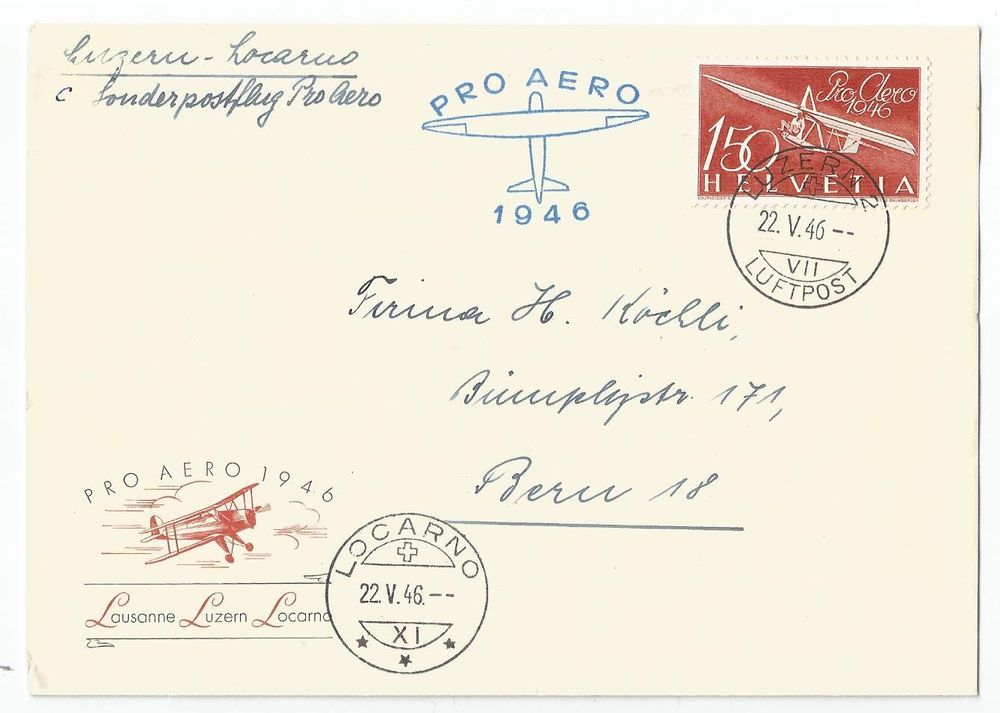 Luzern - Locarno
c Sonderpostflug Pro Aero
PRO AERO
1946
Pro Aero
1946
150
HELVETIA
LUZERN 2
22. V. 46 --
VII
LUFTPOST
Firma H. Köchli,
Bümplizstr. 171,
Bern 18
PRO AERO 1946
Lausanne Luzern Locarno
LOCARNO
22. V. 46. --
XI